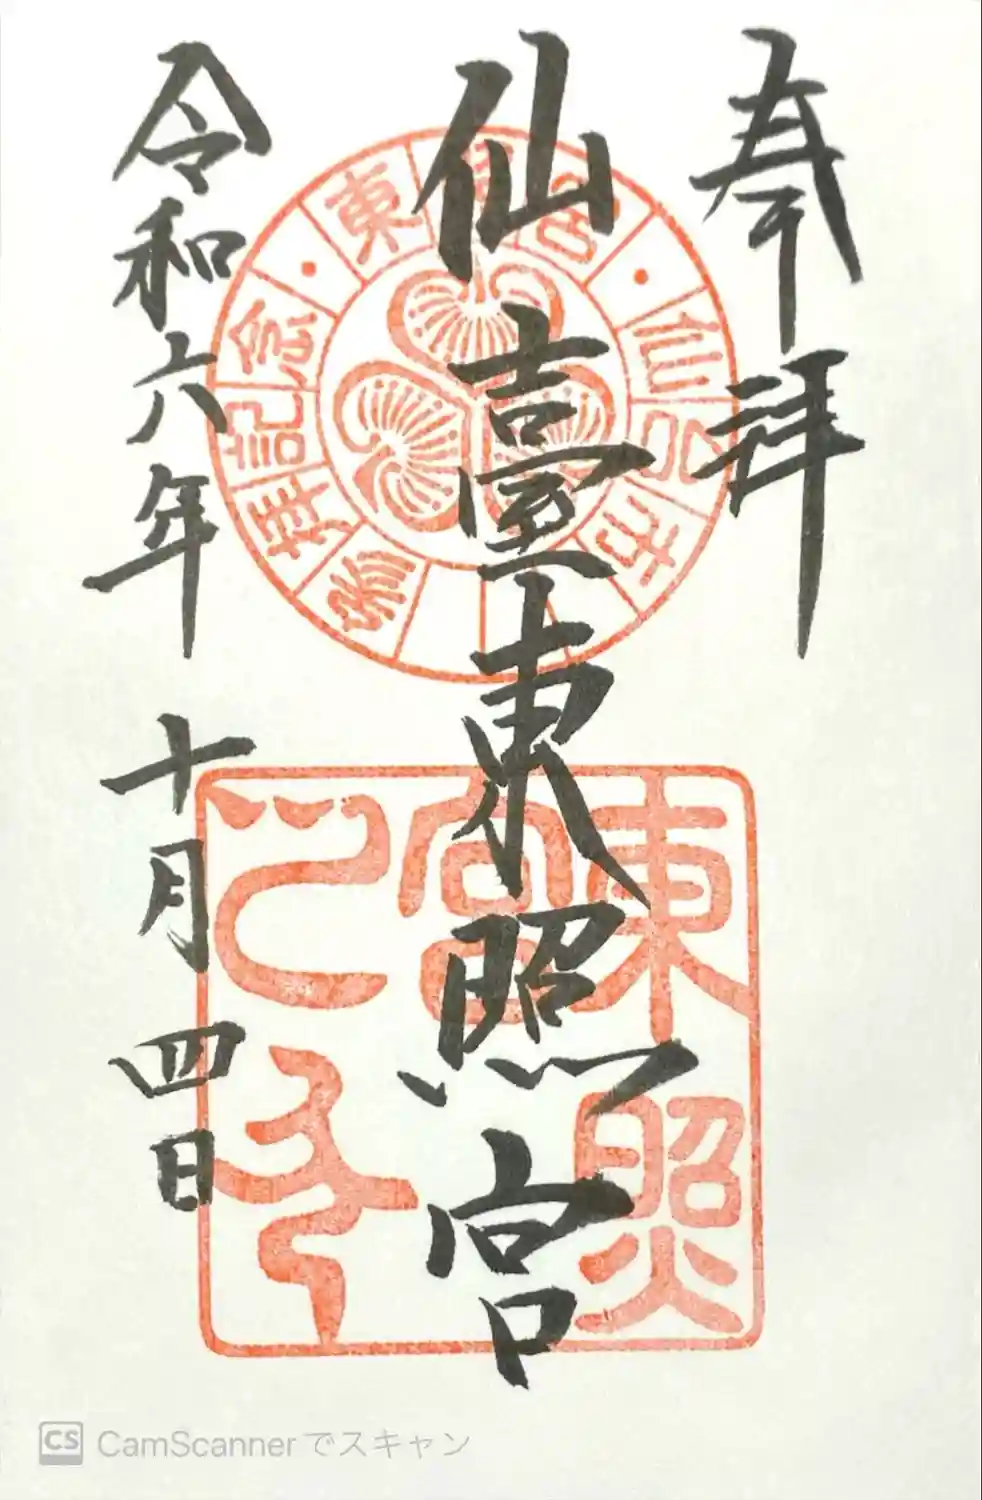 奉拝
仙臺東照宮
令和六年 十月 四日
東照宮 • 仙台市
参拝記念 •
東照宮
CS CamScannerでスキャン